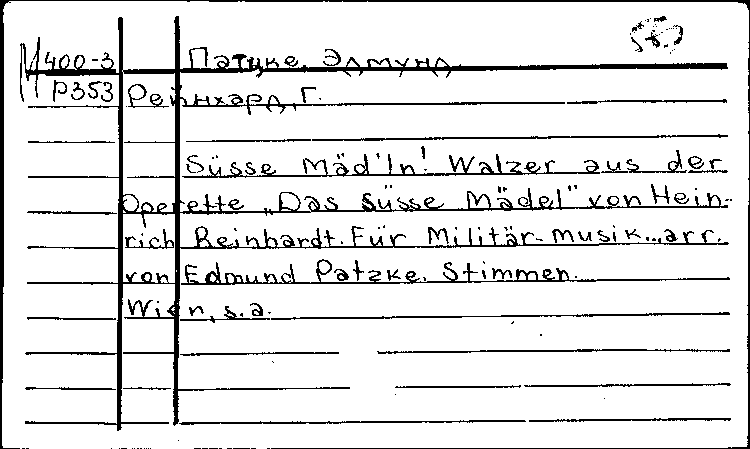 М400-3 Патцке, Эдмунд
Р353 Рейнхард, Г.
Süsse Mäd'ln! Walzer aus der
Operette „Das süsse Mädel" von Hein-
rich Reinhardt. Für Militär-musik... arr.
von Edmund Patzke. Stimmen.
Wien, s.a.